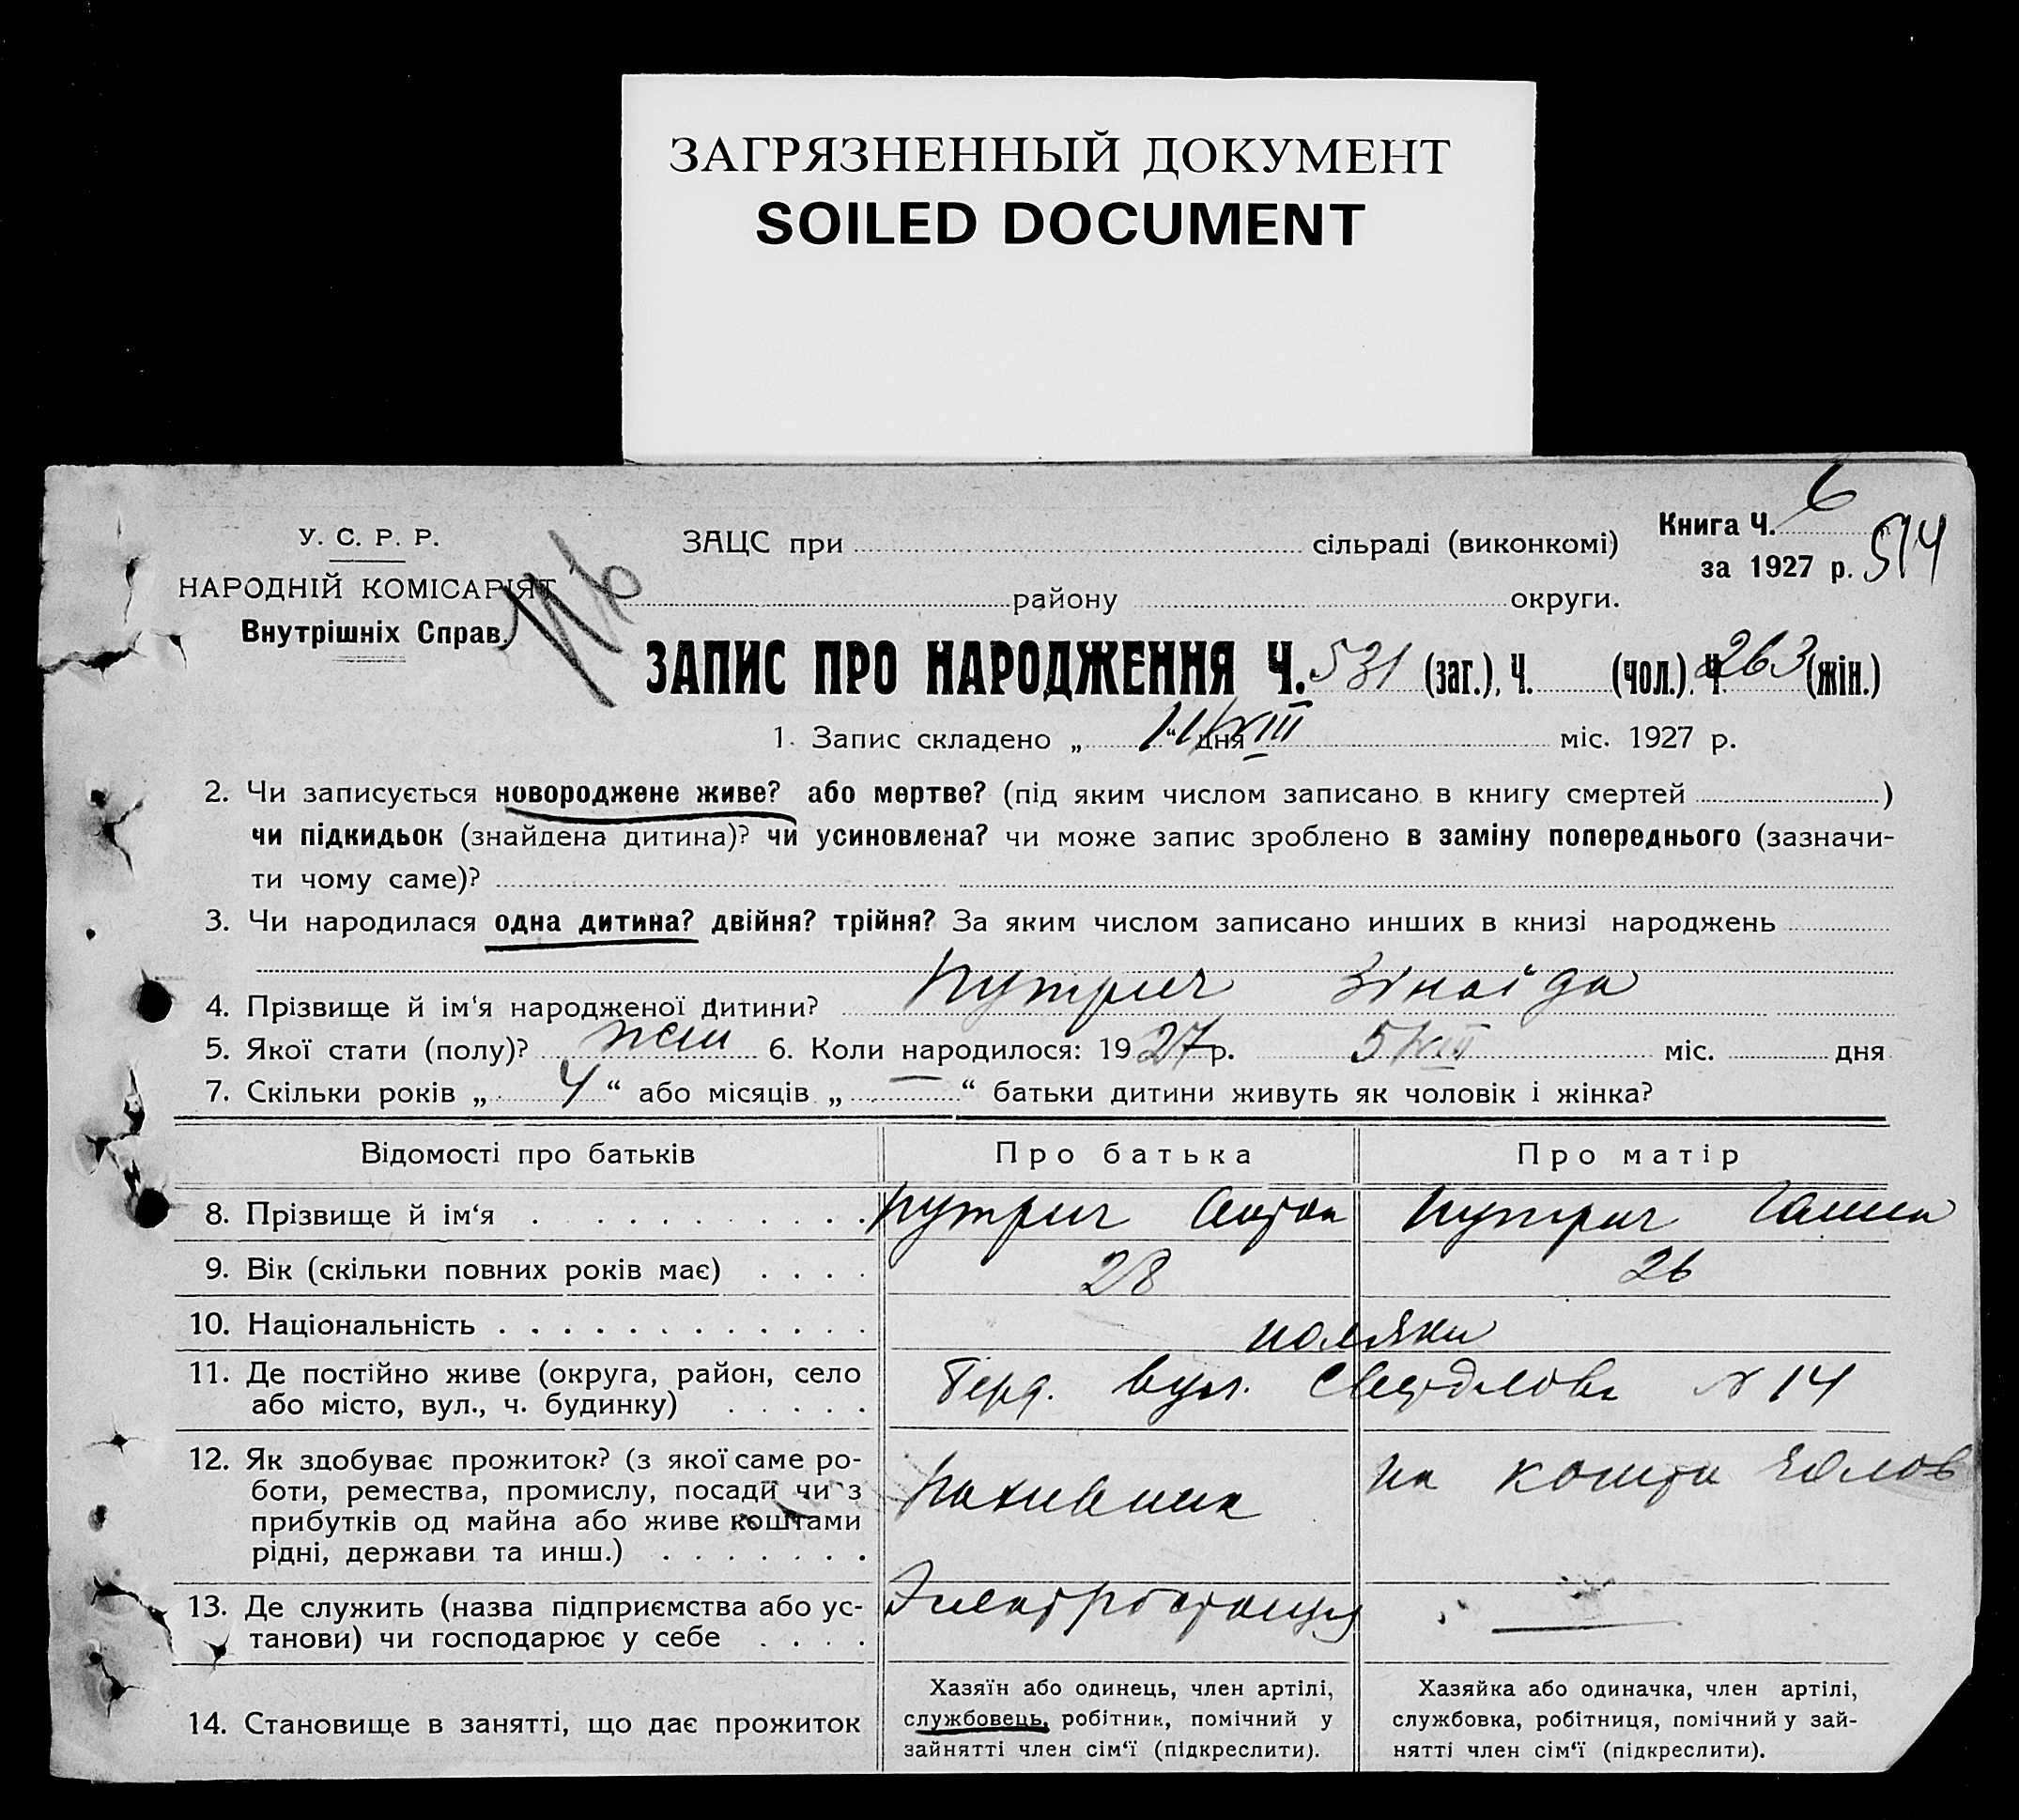 ЗАГРЯЗНЕННЫЙ ДОКУМЕНТ
SOILED DOCUMENT
У. С. Р. Р.
НАРОДНІЙ КОМІСАРІЯТ
Внутрішніх Справ
ЗАЦС при сільраді (виконкомі)
району округи.
Книга Ч. 6
за 1927 р. 514
ЗАПИС ПРО НАРОДЖЕННЯ Ч. 531 (заг.), Ч. (чол.). Ч. 263 (жін.)
1. Запис складено „ 11/VIII “ дня міс. 1927 р.
2. Чи записується новороджене живе? або мертве? (під яким числом записано в книгу смертей )
чи підкидьок (знайдена дитина)? чи усиновлена? чи може запис зроблено в заміну попереднього (зазначи-
ти чому саме)?
3. Чи народилася одна дитина? двійня? трійня? За яким числом записано инших в книзі народжень
4. Прізвище й ім‘я народженої дитини? Кутрич Зінаїда
5. Якої стати (полу)? жін 6. Коли народилося: 1927 р. 5/VIII міс. дня
7. Скільки років „ 4 “ або місяців „ — “ батьки дитини живуть як чоловік і жінка?
Відомості про батьків Про батька Про матір
8. Прізвище й ім‘я Кутрич Антон Кутрич Ганна
9. Вік (скільки повних років має) 28 26
10. Національність поляки
11. Де постійно живе (округа, район, село
або місто, вул., ч. будинку)
Берд. вул. Свердлова № 14
12. Як здобуває прожиток? (з якої саме ро-
боти, ремества, промислу, посади чи з
прибутків од майна або живе коштами
рідні, держави та инш.)
на кошти
13. Де служить (назва підприємства або ус-
танови) чи господарює у себе
Электростанция —
14. Становище в занятті, що дає прожиток
Хазяїн або одинець, член артілі,
службовець, робітник, помічний у
зайнятті член сім‘ї (підкреслити).
Хазяйка або одиначка, член артілі,
службовка, робітниця, помічний у зай-
нятті член сім‘ї (підкреслити).